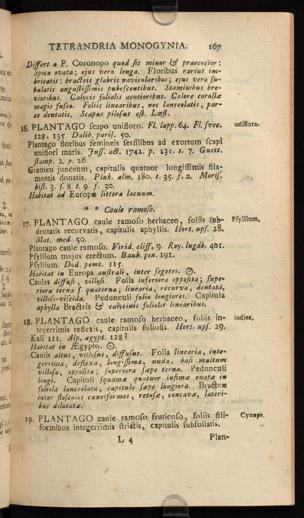 TETRANDRIA MONOGYNIA. 167
Differt a P. Coronopo quod sit minor & præcocior:
Spica ovata; ejus vero longa. Floribus rarius im-
bricatis: bracteis glabris navicularibus; ejus vero su-
bulatis angustissimis pubescentibus. Staminibus bre-
vioribus. Calycis foliolis acutioribus. Colore corollæ
magis fusco. Foliis linearibus, nec lanceolatis, par-
ce dentatis. Scapus pilosus est. Lœfl.
16. PLANTAGO scapo unifloro. Fl. lapp. 64. Fl. svec. uniflora.
128. 135. Dalib. paris. 50.
Plantago floribus femineis sessilibus ad exortum scapi
uniflori maris. Juss. act. 1742. p. 131. t. 7. Guett.
stamp. 2. p. 26
Gramen junceum, capitulis quatuor longissimis fila-
mentis donatis. Pluk. alm. 180. t. 35. f. 2. Moris.
hist. 3. s. 8. t. 9. f. 30.
Habitat ad Europæ littora lacuum.
* * Caule ramoso.
17. PLANTAGO caule ramoso herbaceo, foliis sub- Psyllium.
dentatis recurvatis, capitulis aphyllis. Hort. ups. 28.
Mat. med. 50.
Plantago caule ramoso. Virid. cliff. 9. Roy. lugdb. 401.
Psyllium majus erectum. Bauh. pin. 191.
Psyllium. Dod. pempt. 115.
Habitat in Europa australi, inter segetes. ☉.
Caules diffusi, villosi. Folia inferiora opposita; supe-
riora terna s. quaterna; linearia, recurva, dentata,
villoso-viscida. Pedunculi foliis longiores. Capitula
aphylla Bracteis & calycinis foliolis linearibus.
18. PLANTAGO caule ramoso herbaceo, foliis in- indica.
tegerrimis reflexis, capitulis foliosis. Hort. ups. 29.
Kali III. Alp. ægypt. 128?
Habitat in Ægypto. ☉.
Caulis altus, villosus, diffusus. Folia linearia, inte-
gerrima, deflexa, longissima, nuda, basi multum
villosa, opposita; superiora sæpe terna. Pedunculi
longi. Capituli squamæ quatuor infimæ enatæ in
foliola lanceolata, capitulo sæpe longiora. Bracteæ
inter flosculos cuneiformes, retusæ, concavæ, lateri-
bus dilutatæ.
19. PLANTAGO caule ramoso fruticoso, foliis fili- Cynops.
formibus integerrimis strictis, capitulis subfoliatis.
L 4 Plan-